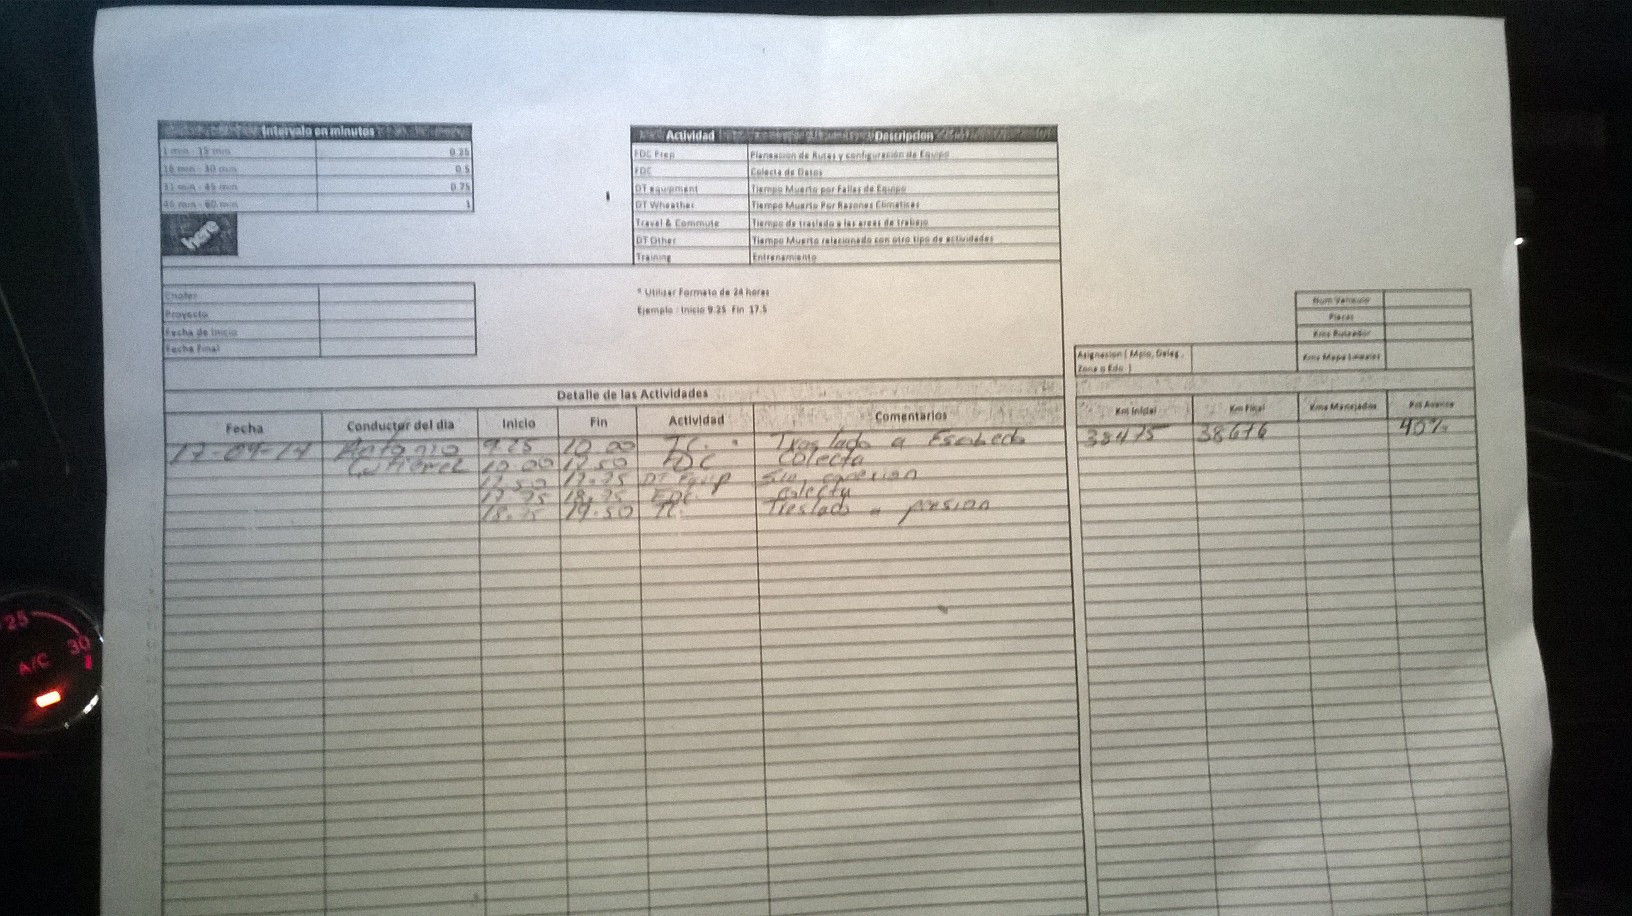 Intervalo en minutos
1 min - 15 min 0.25
16 min - 30 min 0.5
31 min - 45 min 0.75
46 min - 60 min 1
here
Actividad Descripcion
FDC Prep Planeacion de Rutas y configuración de Equipo
FDC Colecta de Datos
DT equipment Tiempo Muerto por Fallas de Equipo
DT Wheather Tiempo Muerto Por Razones Climaticas
Travel & Commute Tiempo de traslado a las areas de trabajo
DT Other Tiempo Muerto relacionado con otro tipo de actividades
Training Entrenamiento
Chofer
Proyecto
Fecha de Inicio
Fecha Final
* Utilizar Formato de 24 horas
Ejemplo : Inicio 9.25 Fin 17.5
Num Vehiculo
Placas
Kms Ruteador
Asignacion ( Mpio, Deleg , Kms Mapa Lineales
Zona o Edo )
Detalle de las Actividades
Fecha Conductor del dia Inicio Fin Actividad Comentarios Km Inicial Km Final Kms Manejados Pct Avance
17-09-14 Antonio 9.25 10.00 T.C. Traslado a Escobedo 38475 38676 40%
10.00 17.50 FDC Colecta
17.50 17.75 DT Equip Sin conexion
17.75 18.75 FDC colecta
18.75 19.50 TC. Treslado a
25
30
A/C